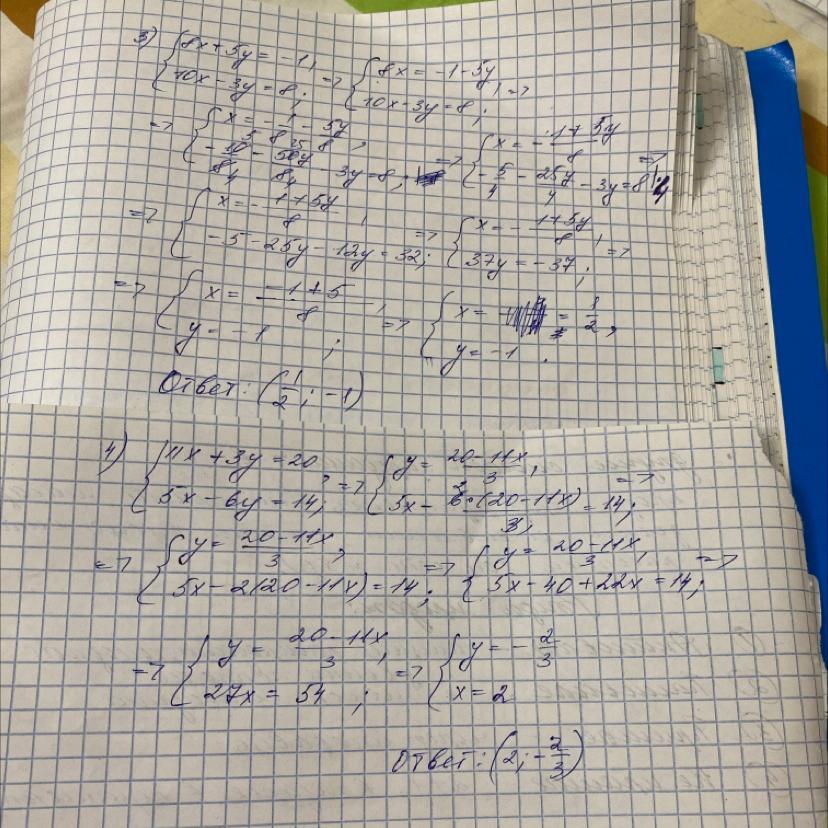 3) { 8x+5y = -1, 10x-3y = 8; => { 8x = -1-5y, 10x-3y = 8; =>
=> { x = -1/8 - 5y/8, -10/8 - 50y/8 - 3y = 8; => { x = -(1+5y)/8, -5/4 - 25y/4 - 3y = 8 |·4 =>
=> { x = -(1+5y)/8, -5-25y-12y = 32; => { x = -(1+5y)/8, 37y = -37; =>
=> { x = (-1+5)/8, y = -1; => { x = 1/2, y = -1.
Ответ: (1/2; -1)
4) { 11x+3y = 20, 5x-6y = 14; => { y = (20-11x)/3, 5x - 6·(20-11x)/3 = 14; =>
=> { y = (20-11x)/3, 5x-2(20-11x) = 14; => { y = (20-11x)/3, 5x-40+22x = 14; =>
=> { y = (20-11x)/3, 27x = 54; => { y = -2/3, x = 2
Ответ: (2; -2/3)